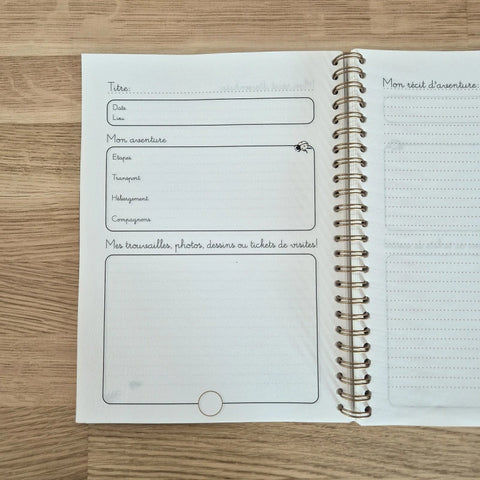 Titre:
Date
Lieu
Mon aventure
Etapes
Transport
Hébergement
Compagnons
Mes trouvailles, photos, dessins ou tickets de visites!
Mon récit d'aventure: